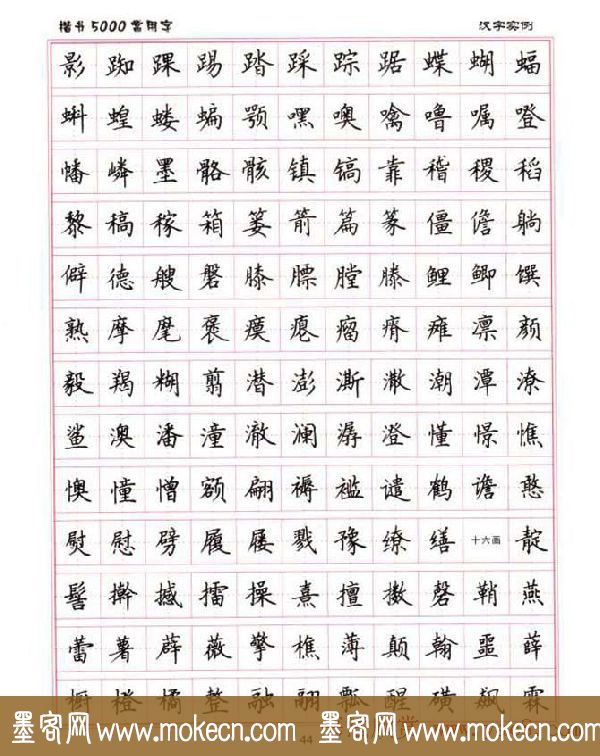 楷书5000常用字 汉字实例
影 踟 踝 踢 踏 踩 踪 踞 蝶 蝴 蝠
蝌 蝗 蝼 蝙 颚 嘿 噢 噙 噜 嘱 噔
幡 嶙 墨 骼 骸 镇 镐 靠 稽 稷 稻
黎 稿 稼 箱 篓 箭 篇 篆 僵 儋 躺
僻 德 艘 磐 膝 膘 膛 滕 鲤 鲫 馔
熟 摩 麾 褒 瘼 瘪 瘤 瘠 瘫 凛 颜
毅 羯 糊 翦 潜 澎 澌 潵 潮 潭 潦
鲨 澳 潘 潼 澈 澜 潺 澄 懂 憬 憔
懊 憧 憎 额 翩 褥 褴 谴 鹤 谵 憨
熨 慰 劈 履 屦 戮 豫 缭 缮 十六画 靛
髻 擀 撼 擂 操 熹 擅 擞 磬 鞘 燕
蕾 薯 薜 薇 擎 樵 薄 颠 翰 噩 薛
橱 橙 橘 整 融 翮 瓢 醒 磺 飙 霖
墨客网 www.mokecn.com 44 墨客网 www.mokecn.com